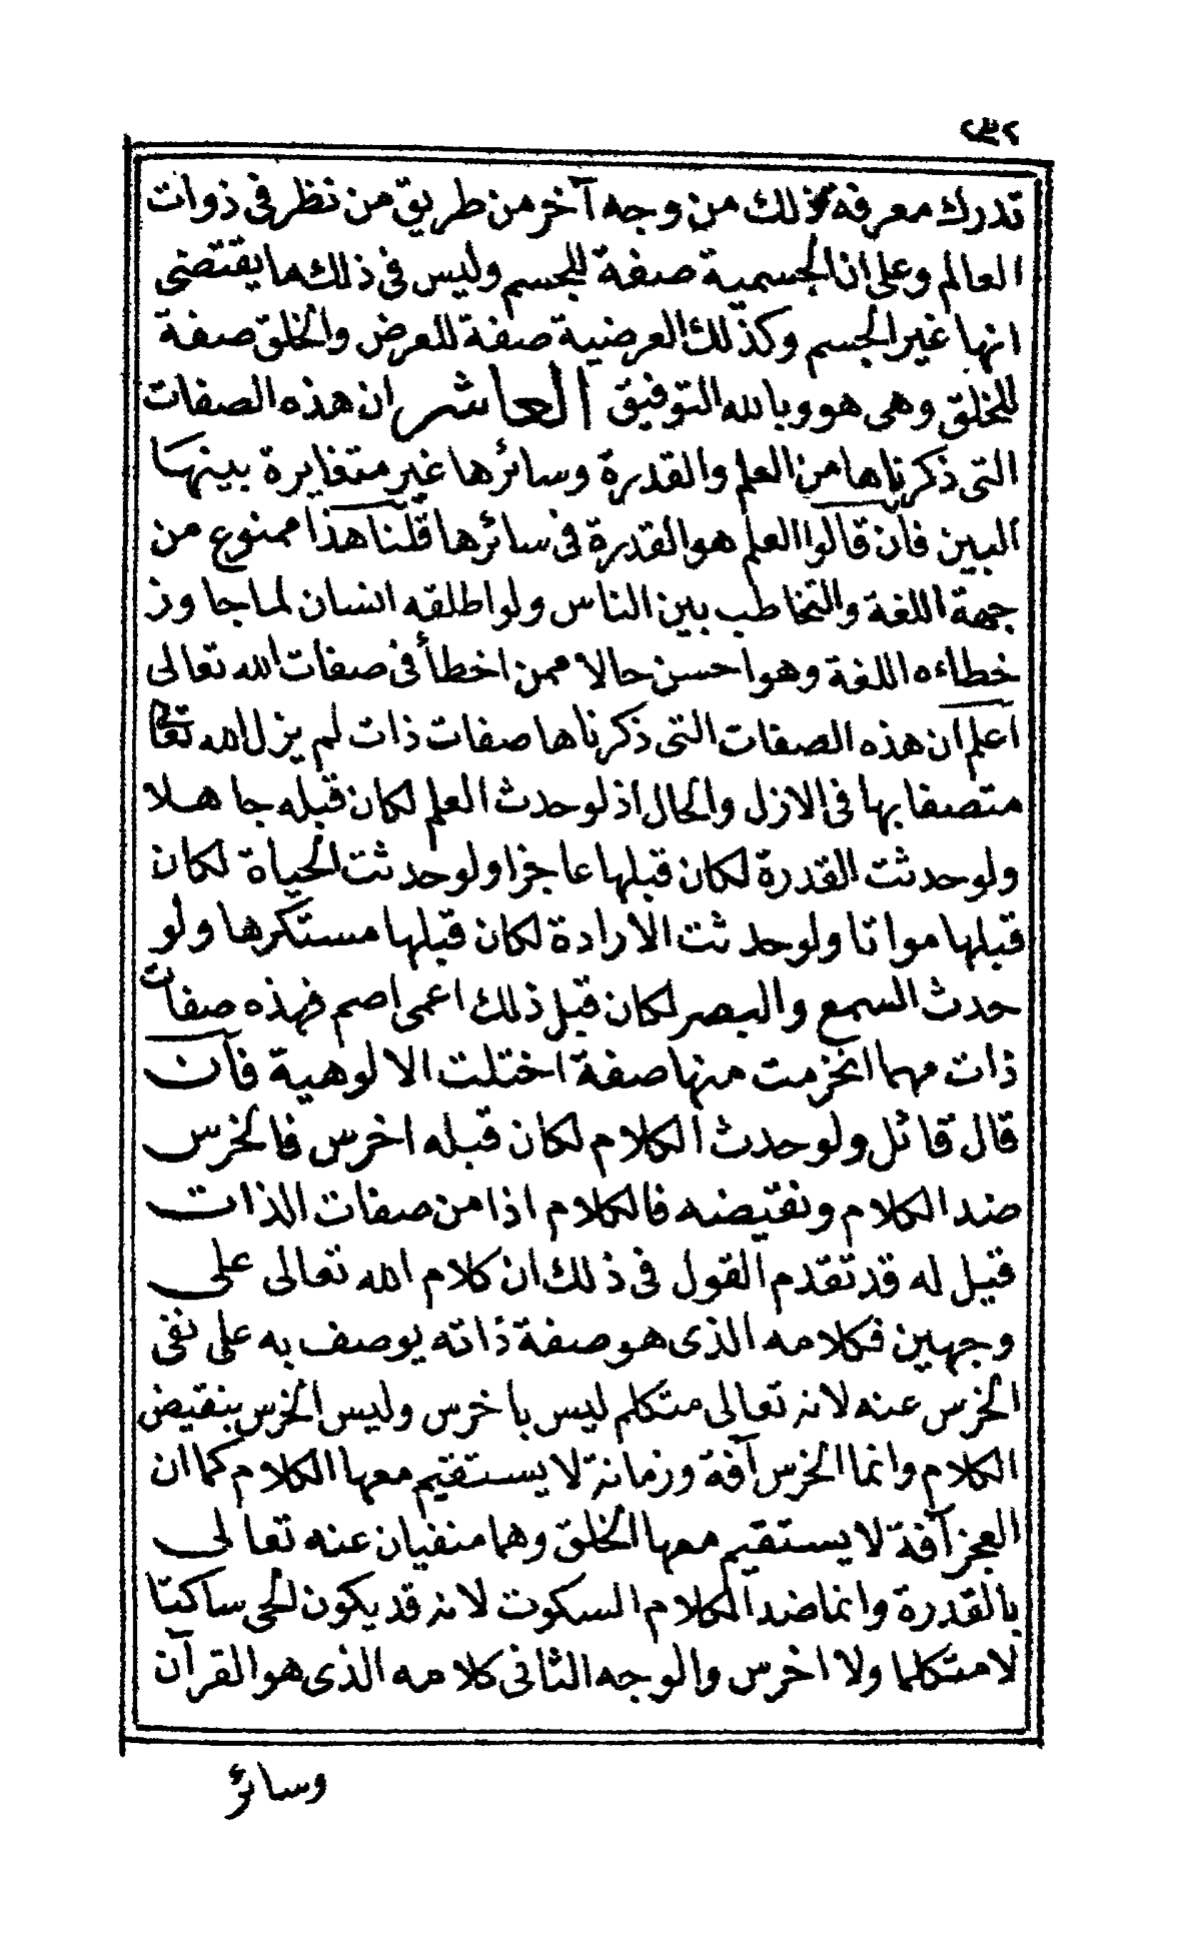 ٢٣٢
تدرك معرفة ذلك من وجه آخر من طريق من نظر فى ذوات
العالم وعلى ان الجسمية صفة للجسم وليس فى ذلك ما يقتضى
انها غير الجسم وكذلك العرضية صفة للعرض والخلق صفة
للخلق وهى هو وبالله التوفيق العاشر ان هذه الصفات
التى ذكرناها من العلم والقدرة وسائرها غير متغايرة بينها
البين فان قالوا العلم هو القدرة فى سائرها قلنا هذا ممنوع من
جهة اللغة والتخاطب بين الناس ولو اطلقه انسان لما جاوز
خطاءه اللغة وهو احسن حالا ممن اخطأ فى صفات الله تعالى
اعلم ان هذه الصفات التى ذكرناها صفات ذات لم يزل الله تعالى
متصفا بها فى الازل والحال اذ لو حدث العلم لكان قبله جاهلا
ولو حدثت القدرة لكان قبلها عاجزا ولو حدثت الحياة لكان
قبلها مواتا ولو حدثت الارادة لكان قبلها مستكرها ولو
حدث السمع والبصر لكان قبل ذلك اعمى اصم فهذه صفات
ذات مهما انخرمت منها صفة اختلت الالوهية فان
قال قائل ولو حدث الكلام لكان قبله اخرس فالخرس
ضد الكلام ونقيضه فالكلام اذا من صفات الذات
قيل له قد تقدم القول فى ذلك ان كلام الله تعالى على
وجهين فكلامه الذى هو صفة ذاته يوصف به على نفى
الخرس عنه لانه تعالى متكلم ليس باخرس وليس الخرس بنقيض
الكلام وانما الخرس آفة وزمانة لا يستقيم معها الكلام كما ان
العجز آفة لا يستقيم معها الخلق وهما منفيان عنه تعالى
بالقدرة وانما ضد الكلام السكوت لانه قد يكون الحى ساكتا
لا متكلما ولا اخرس والوجه الثانى كلامه الذى هو القرآن
وسائر